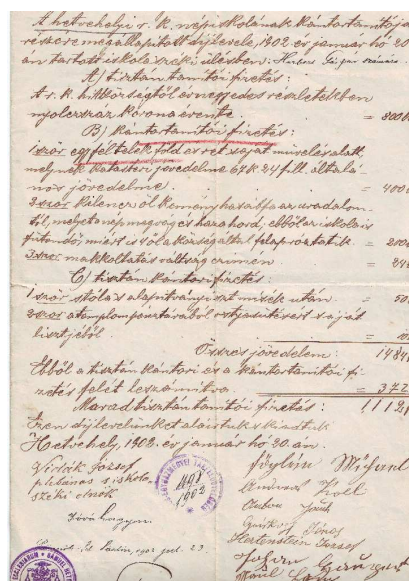 A hetvehelyi r. k. népiskolának kántortanítója
részére megállapított díjlevele, 1902 év január hó 20-
án tartott iskolaszéki ülésben.
A) tisztán tanítói fizetés:
A r. k. hitközségtől évnegyedes részletekben
nyolcszáz korona évente = 800
B) Kántortanítói fizetés:
1ször egy féltelek föld és rét saját művelés alatt,
melynek kataszteri jövedelme 67 K 24 fill. általá-
nos jövedelme = 400
2szor kilenc öl kemény hasábfa az uradalom-
tól, melyet a nép megvág és haza hord, ebből az iskola is
fűtendő, miért is 1 öl a község által felapróztatik = 200
3szor makkoltatás váltság címen = 24
C) tisztán kántori fizetés:
1ször stóla s alapítványi szt misék után = 50
2szor a templom pénztárából ostyasütésért saját
lisztjéből =
Összes jövedelem: 1484
Ebből a tisztán kántori és a kántortanítói fi-
zetés felét leszámítva = 372
Marad tisztán tanítói fizetés: 1112
Ezen díjlevelünket aláírtuk s kiadtuk
Hetvehely, 1902. év január hó 20.án.
József
plébános s iskola-
széki elnök
491
1902
Michael
Koll
János
Hertenstein József
Jóváhagyom.
1902 23.
Johan
Paul